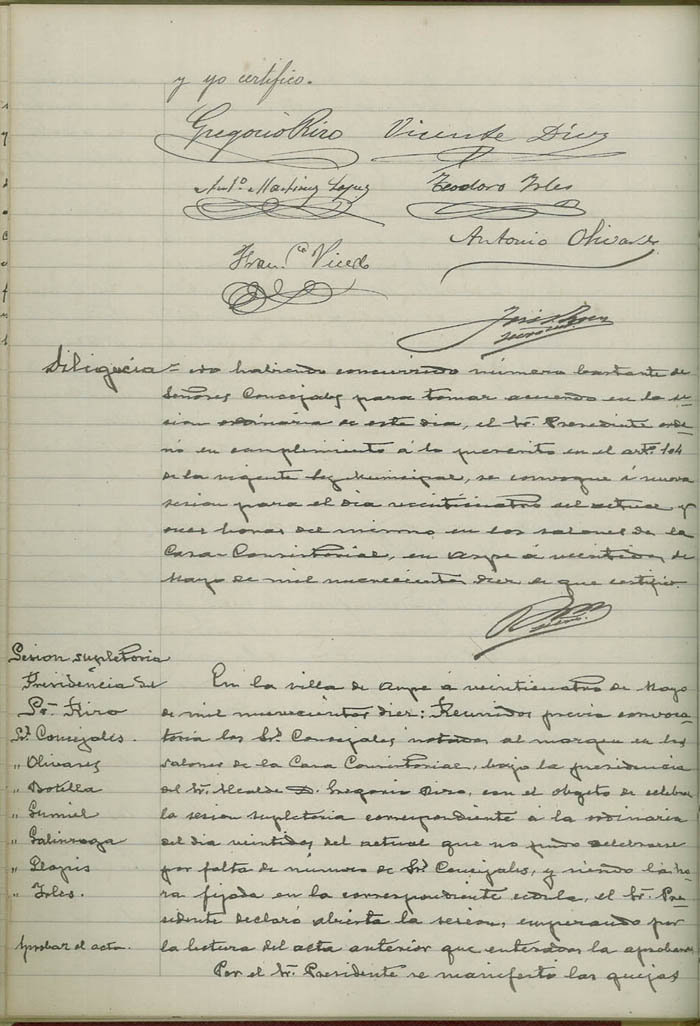 y yo certifico.
Gregorio Riro Vicente Díez
Ant.º Martinez Lopez Teodoro Isles
Antonio Olivares
Fran.co Vicedo
Diligecia = No habiendo concurrido número bastante de
Señores Concejales para tomar acuerdo en la se-
sion ordinaria de este dia, el Sr. Presidente orde-
nó en cumplimiento á lo prescrito en el artº. 104
de la vigente Ley Municipal, se convoque á nueva
sesion para el dia veinticuatro del actual y
once horas del mismo en los salones de la
Casa-Consistorial, en Aspe á veintidos de
Mayo de mil novecientos diez de que certifico.
Sesion supletoria
Presidencia del
Sr. Riro
Srs. Concejales.
" Olivares
" Botella
" Gumiel
" Galinsoga
" Llopis
" Isles.
Aprobar el acta.
En la villa de Aspe á veinticuatro de Mayo
de mil novecientos diez; Reunidos previa convoca-
toria los Srs. Concejales notados al margen en los
salones de la Casa Consistorial, bajo la presidencia
del Sr. Alcalde D. Gregorio Riro, con el objeto de celebrar
la sesion supletoria correspondiente á la ordinaria
del dia veintidos del actual que no pudo celebrarse
por falta de número de Srs. Concejales, y siendo la ho-
ra fijada en la correspondiente cedula, el Sr. Pre-
sidente declaró abierta la sesion, empezando por
la lectura del acta anterior que enterados la aprobaron
Por el Sr. Presidente se manifestó las quejas